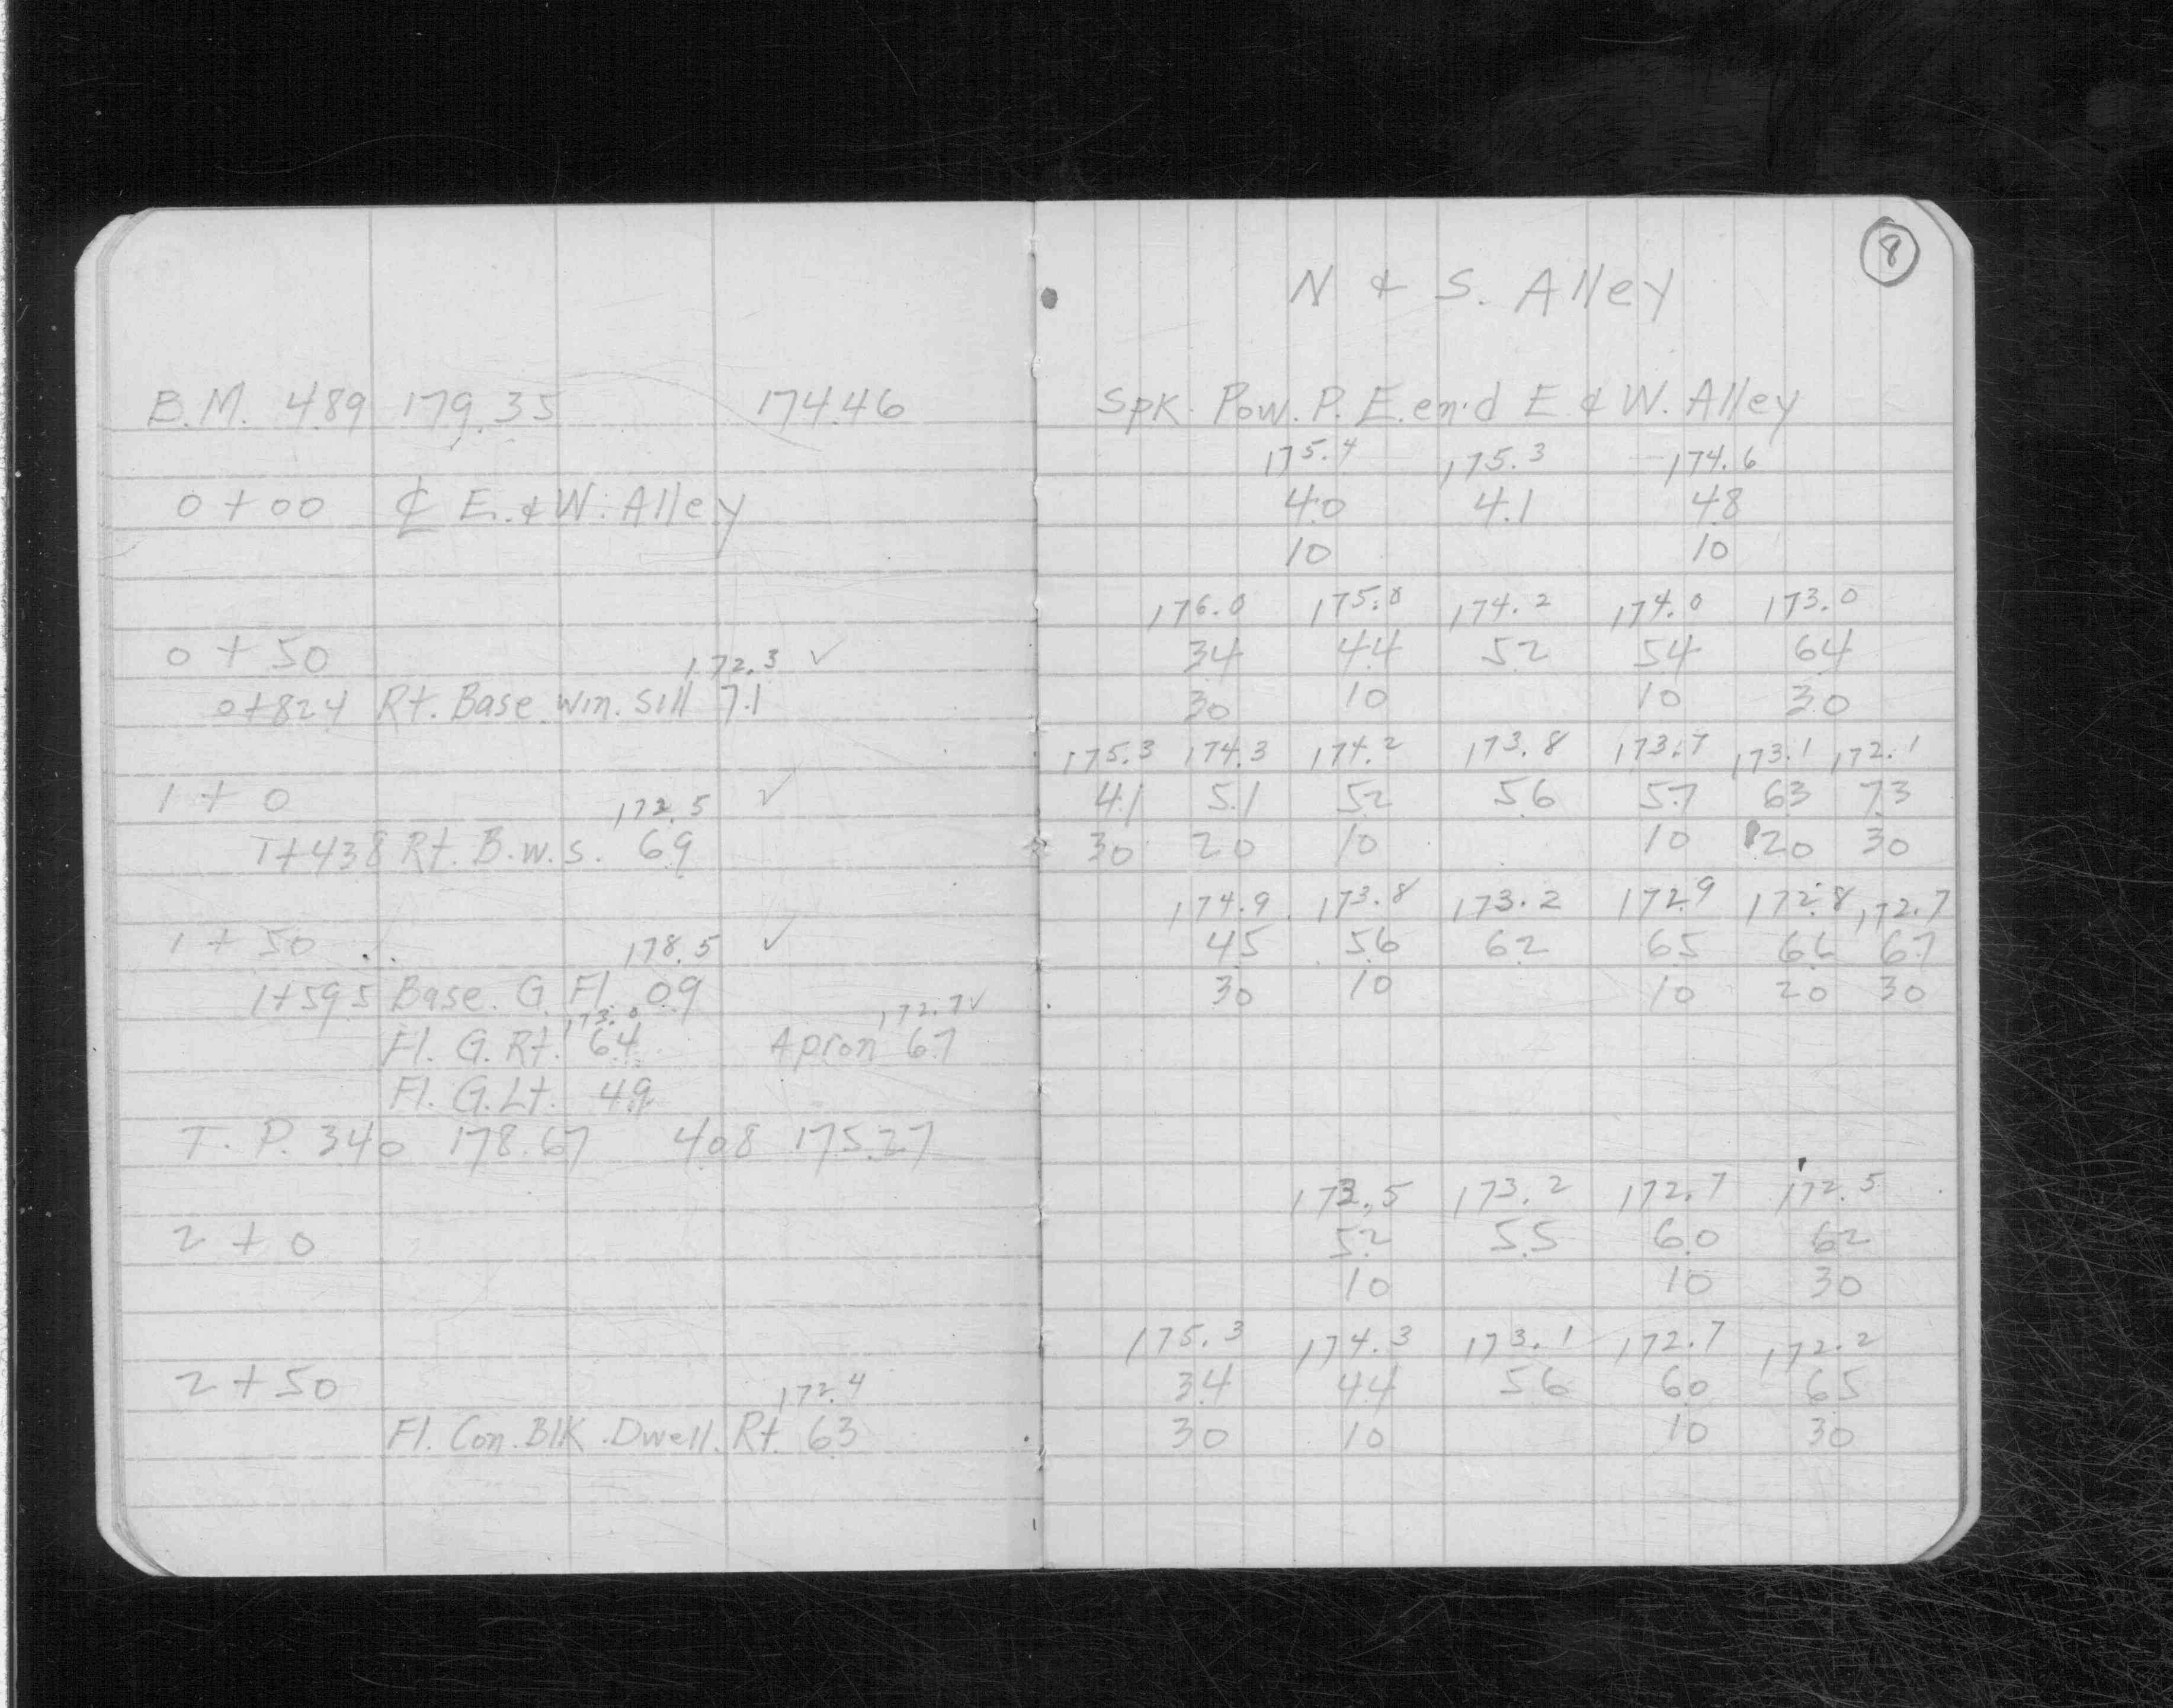 B.M. 4.89 179.35 174.46
0+00 ₵ E. & W. Alley
0+50 172.3 ✓
0+824 Rt. Base. Win. Sill 7.1
1+0 172.5 ✓
1+438 Rt. B.W.S. 6.9
1+50 178.5 ✓
1+595 Base. G. Fl. 0.9
173.0 172.7 ✓
Fl. G. Rt. 6.4 Apron 6.7
Fl. G. Lt. 4.9
T. P. 3.40 178.67 4.08 175.27
2+0
2+50 172.4
Fl. Con. Blk. Dwell. Rt. 6.3
8
N & S. Alley
Spk. Pow. P. E. end E & W. Alley
175.4 175.3 174.6
4.0 4.1 4.8
10 10
176.0 175.0 174.2 174.0 173.0
3.4 4.4 5.2 5.4 6.4
30 10 10 30
175.3 174.3 174.2 173.8 173.7 173.1 172.1
4.1 5.1 5.2 5.6 5.7 6.3 7.3
30 20 10 10 20 30
174.9 173.8 173.2 172.9 172.8 172.7
4.5 5.6 6.2 6.5 6.6 6.7
30 10 10 20 30
173.5 173.2 172.7 172.5
5.2 5.5 6.0 6.2
10 10 30
175.3 174.3 173.1 172.7 172.2
3.4 4.4 5.6 6.0 6.5
30 10 10 30